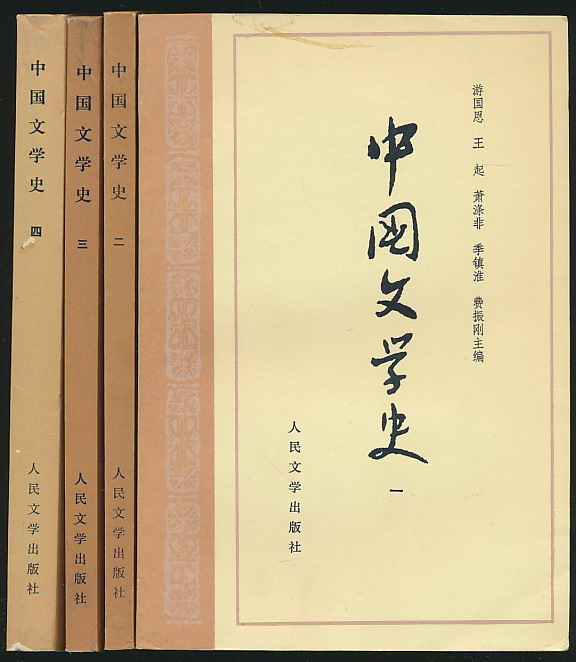 游国恩 王起 萧涤非 季镇淮 费振刚主编
中国文学史
一
人民文学出版社
中国文学史 二
人民文学出版社
中国文学史 三
人民文学出版社
中国文学史 四
人民文学出版社